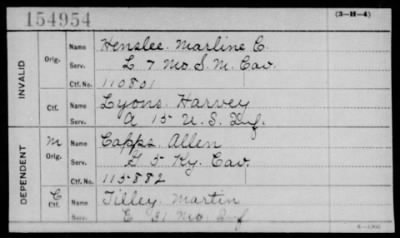 154954
(3-H-4)
INVALID
Orig. Name Henslee, Marline E.
Serv. L. 7 Mo. S. M. Cav.
Ctf. No. 110801
Ctf. Name Lyons, Harvey
Serv. A 15 U.S. Inf.
DEPENDENT
M Orig. Name Capps, Allen
Serv. 5 Ky. Cav.
Ctf. No. 115882
C Ctf. Name Tilley, Martin
Serv. E 31 Mo Inf